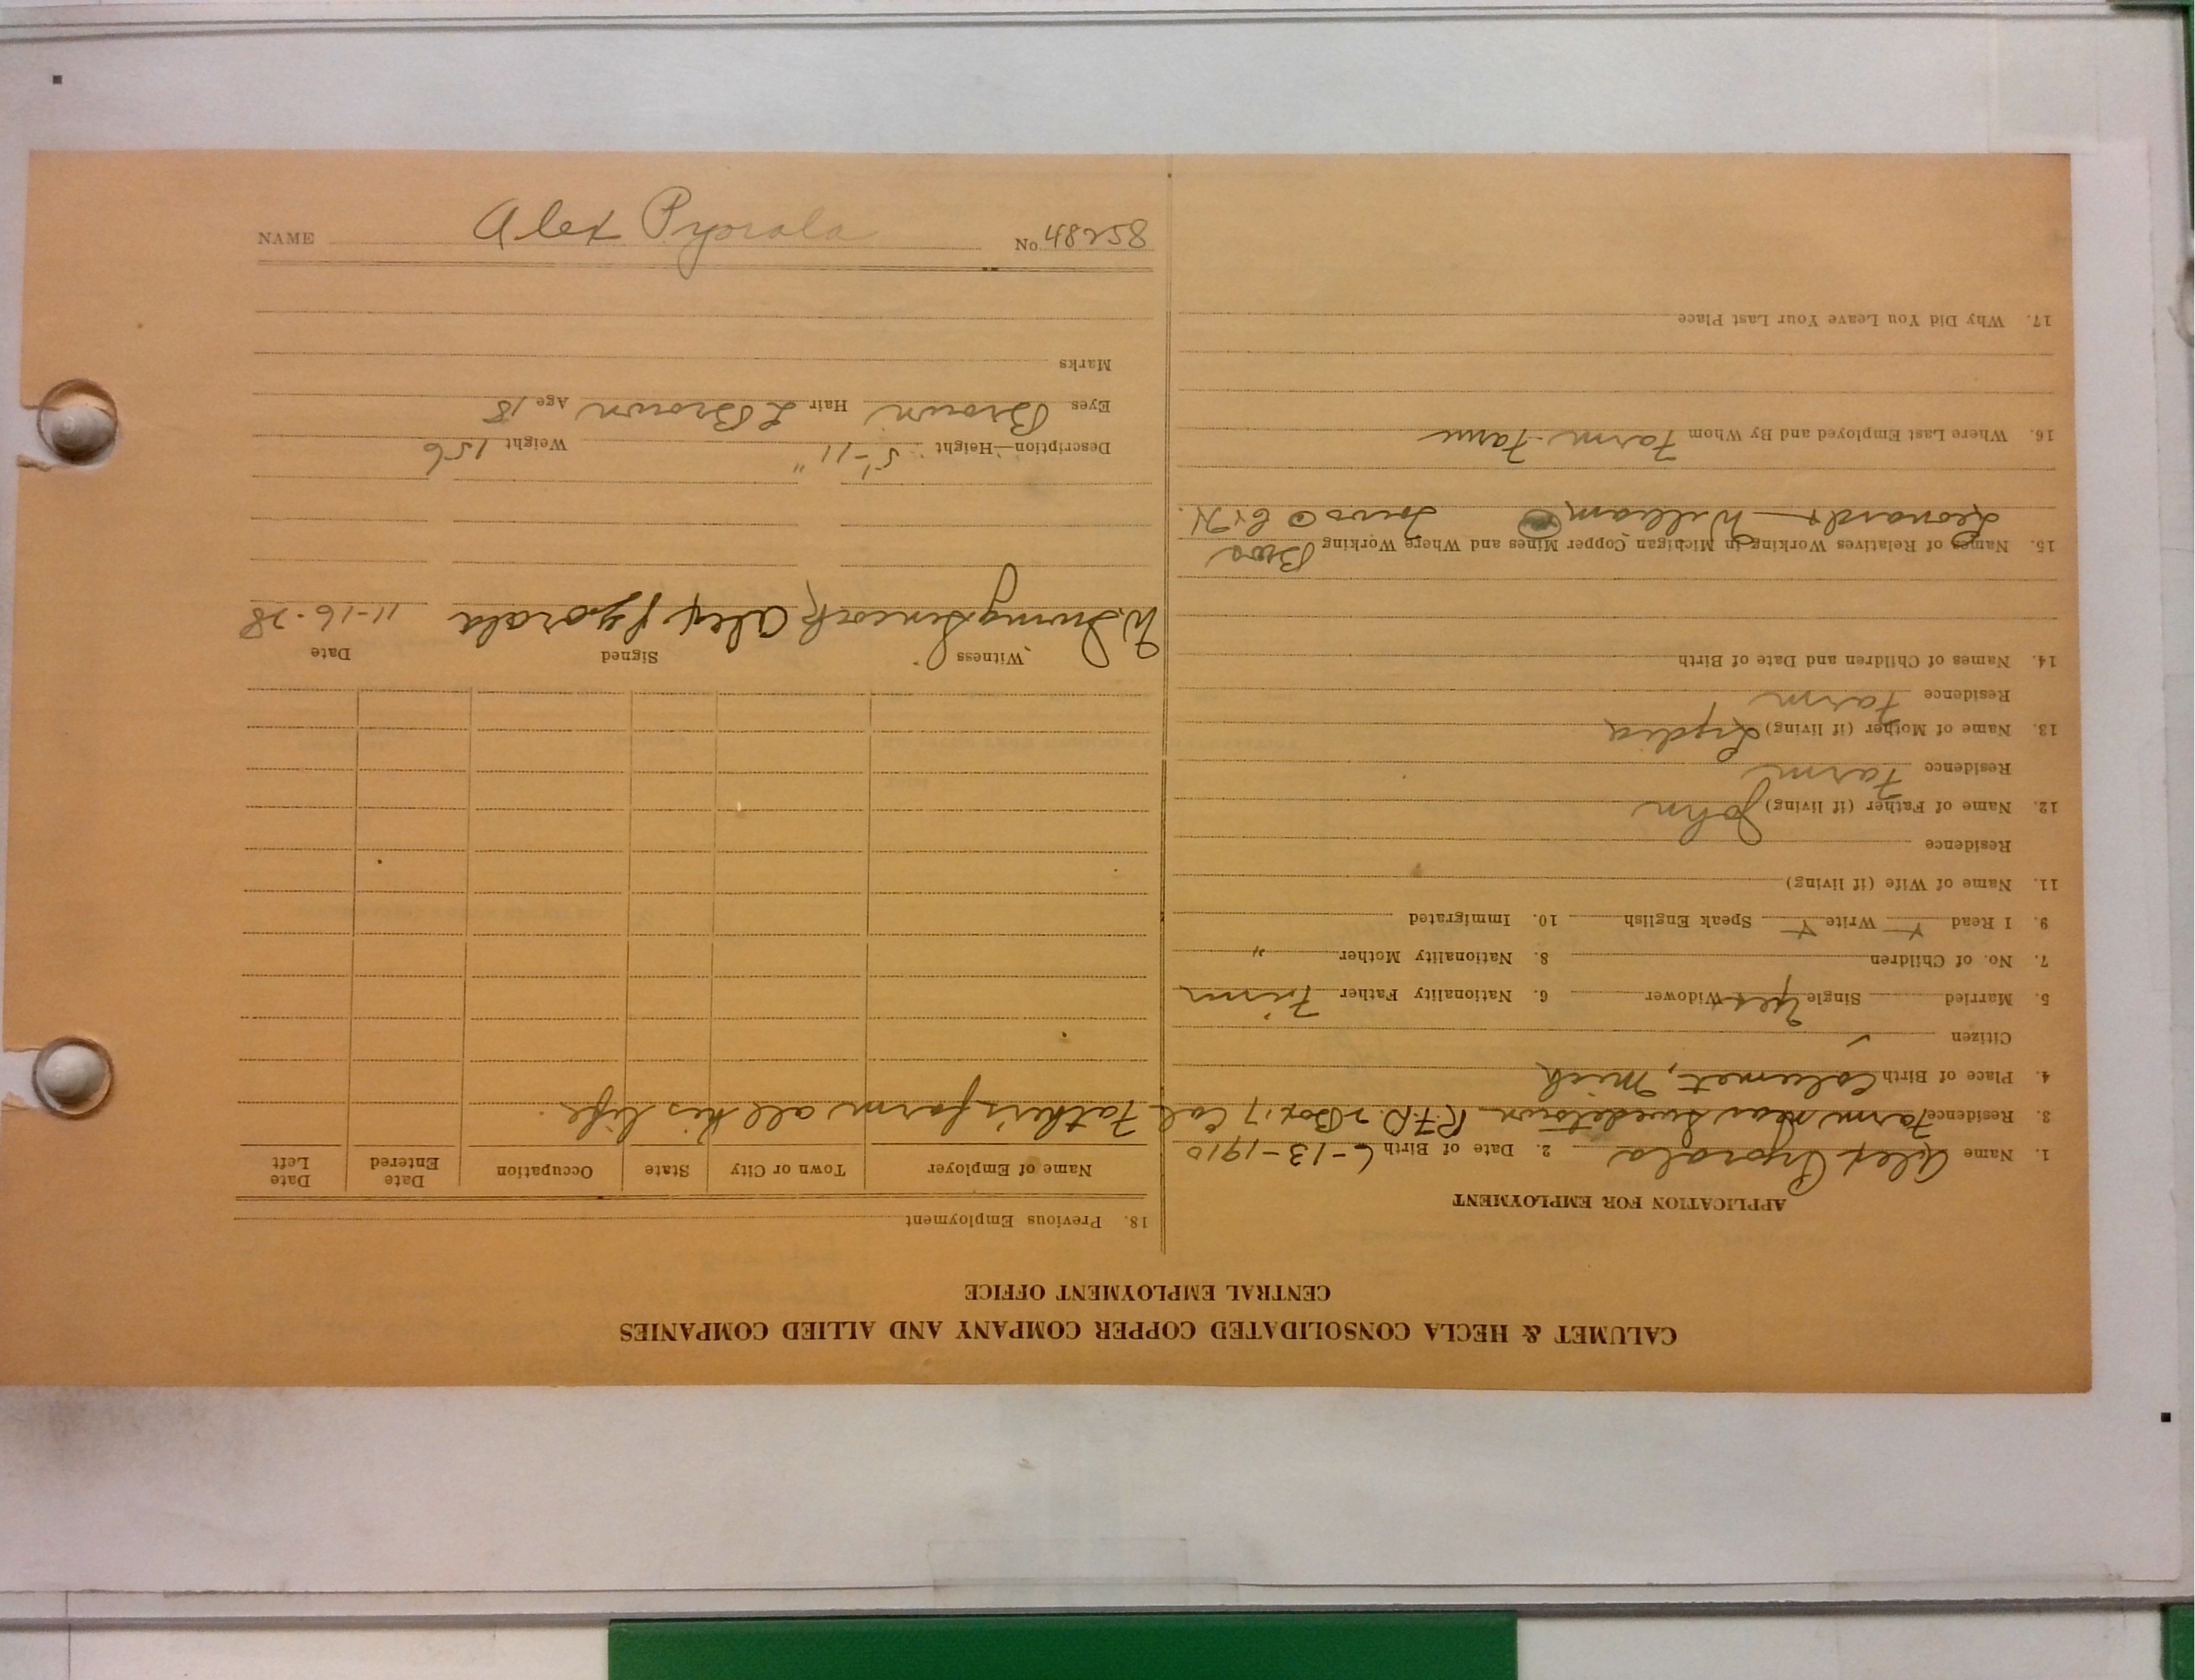 CALUMET & HECLA CONSOLIDATED COPPER COMPANY AND ALLIED COMPANIES
CENTRAL EMPLOYMENT OFFICE
APPLICATION FOR EMPLOYMENT
1. Name Alex Pyorala 2. Date of Birth 6-13-1910
3. Residence Farm near Swedetown R.F.D. 2 Box 17 Cal
4. Place of Birth Calumet, Mich
Citizen ✓
5. Married Single Yes Widower 6. Nationality Father Finn
7. No. of Children 8. Nationality Mother "
9. I Read Y Write Y Speak English 10. Immigrated
11. Name of Wife (if living)
Residence
12. Name of Father (if living) John
Residence Farm
13. Name of Mother (if living) Lydia
Residence Farm
14. Names of Children and Date of Birth
15. Names of Relatives Working in Michigan Copper Mines and Where Working Bros
Leonard + William C & H.
16. Where Last Employed and By Whom Farm Farm
17. Why Did You Leave Your Last Place
18. Previous Employment
Name of Employer Town or City State Occupation Date Entered Date Left
Father's farm all his life.
Witness Signed Date
Alex Pyorala 11-16-28
Description—Height 5'-11" Weight 156
Eyes Brown Hair L Brown Age 18
Marks
NAME Alex Pyorala No. 48258